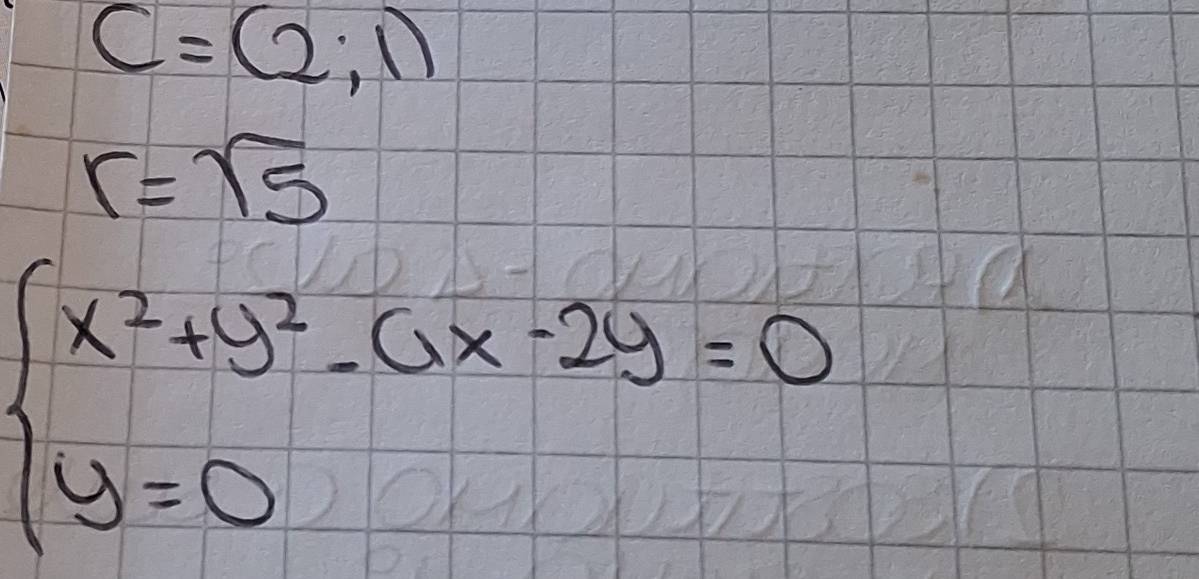 C = (2; 1)
r = √5
x² + y² - 4x - 2y = 0
y = 0